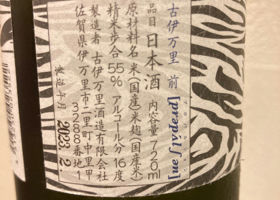 古伊万里 前[záeʃdəʌdəud]
品目 日本酒 内容量 720ml
原材料名 米(国産)米麹(国産米)
精米歩合 55% アルコール分 16度
製造者 古伊万里酒造有限会社
佐賀県伊万里市二里町中里甲
3288番地1
製造年月 2023. 2.